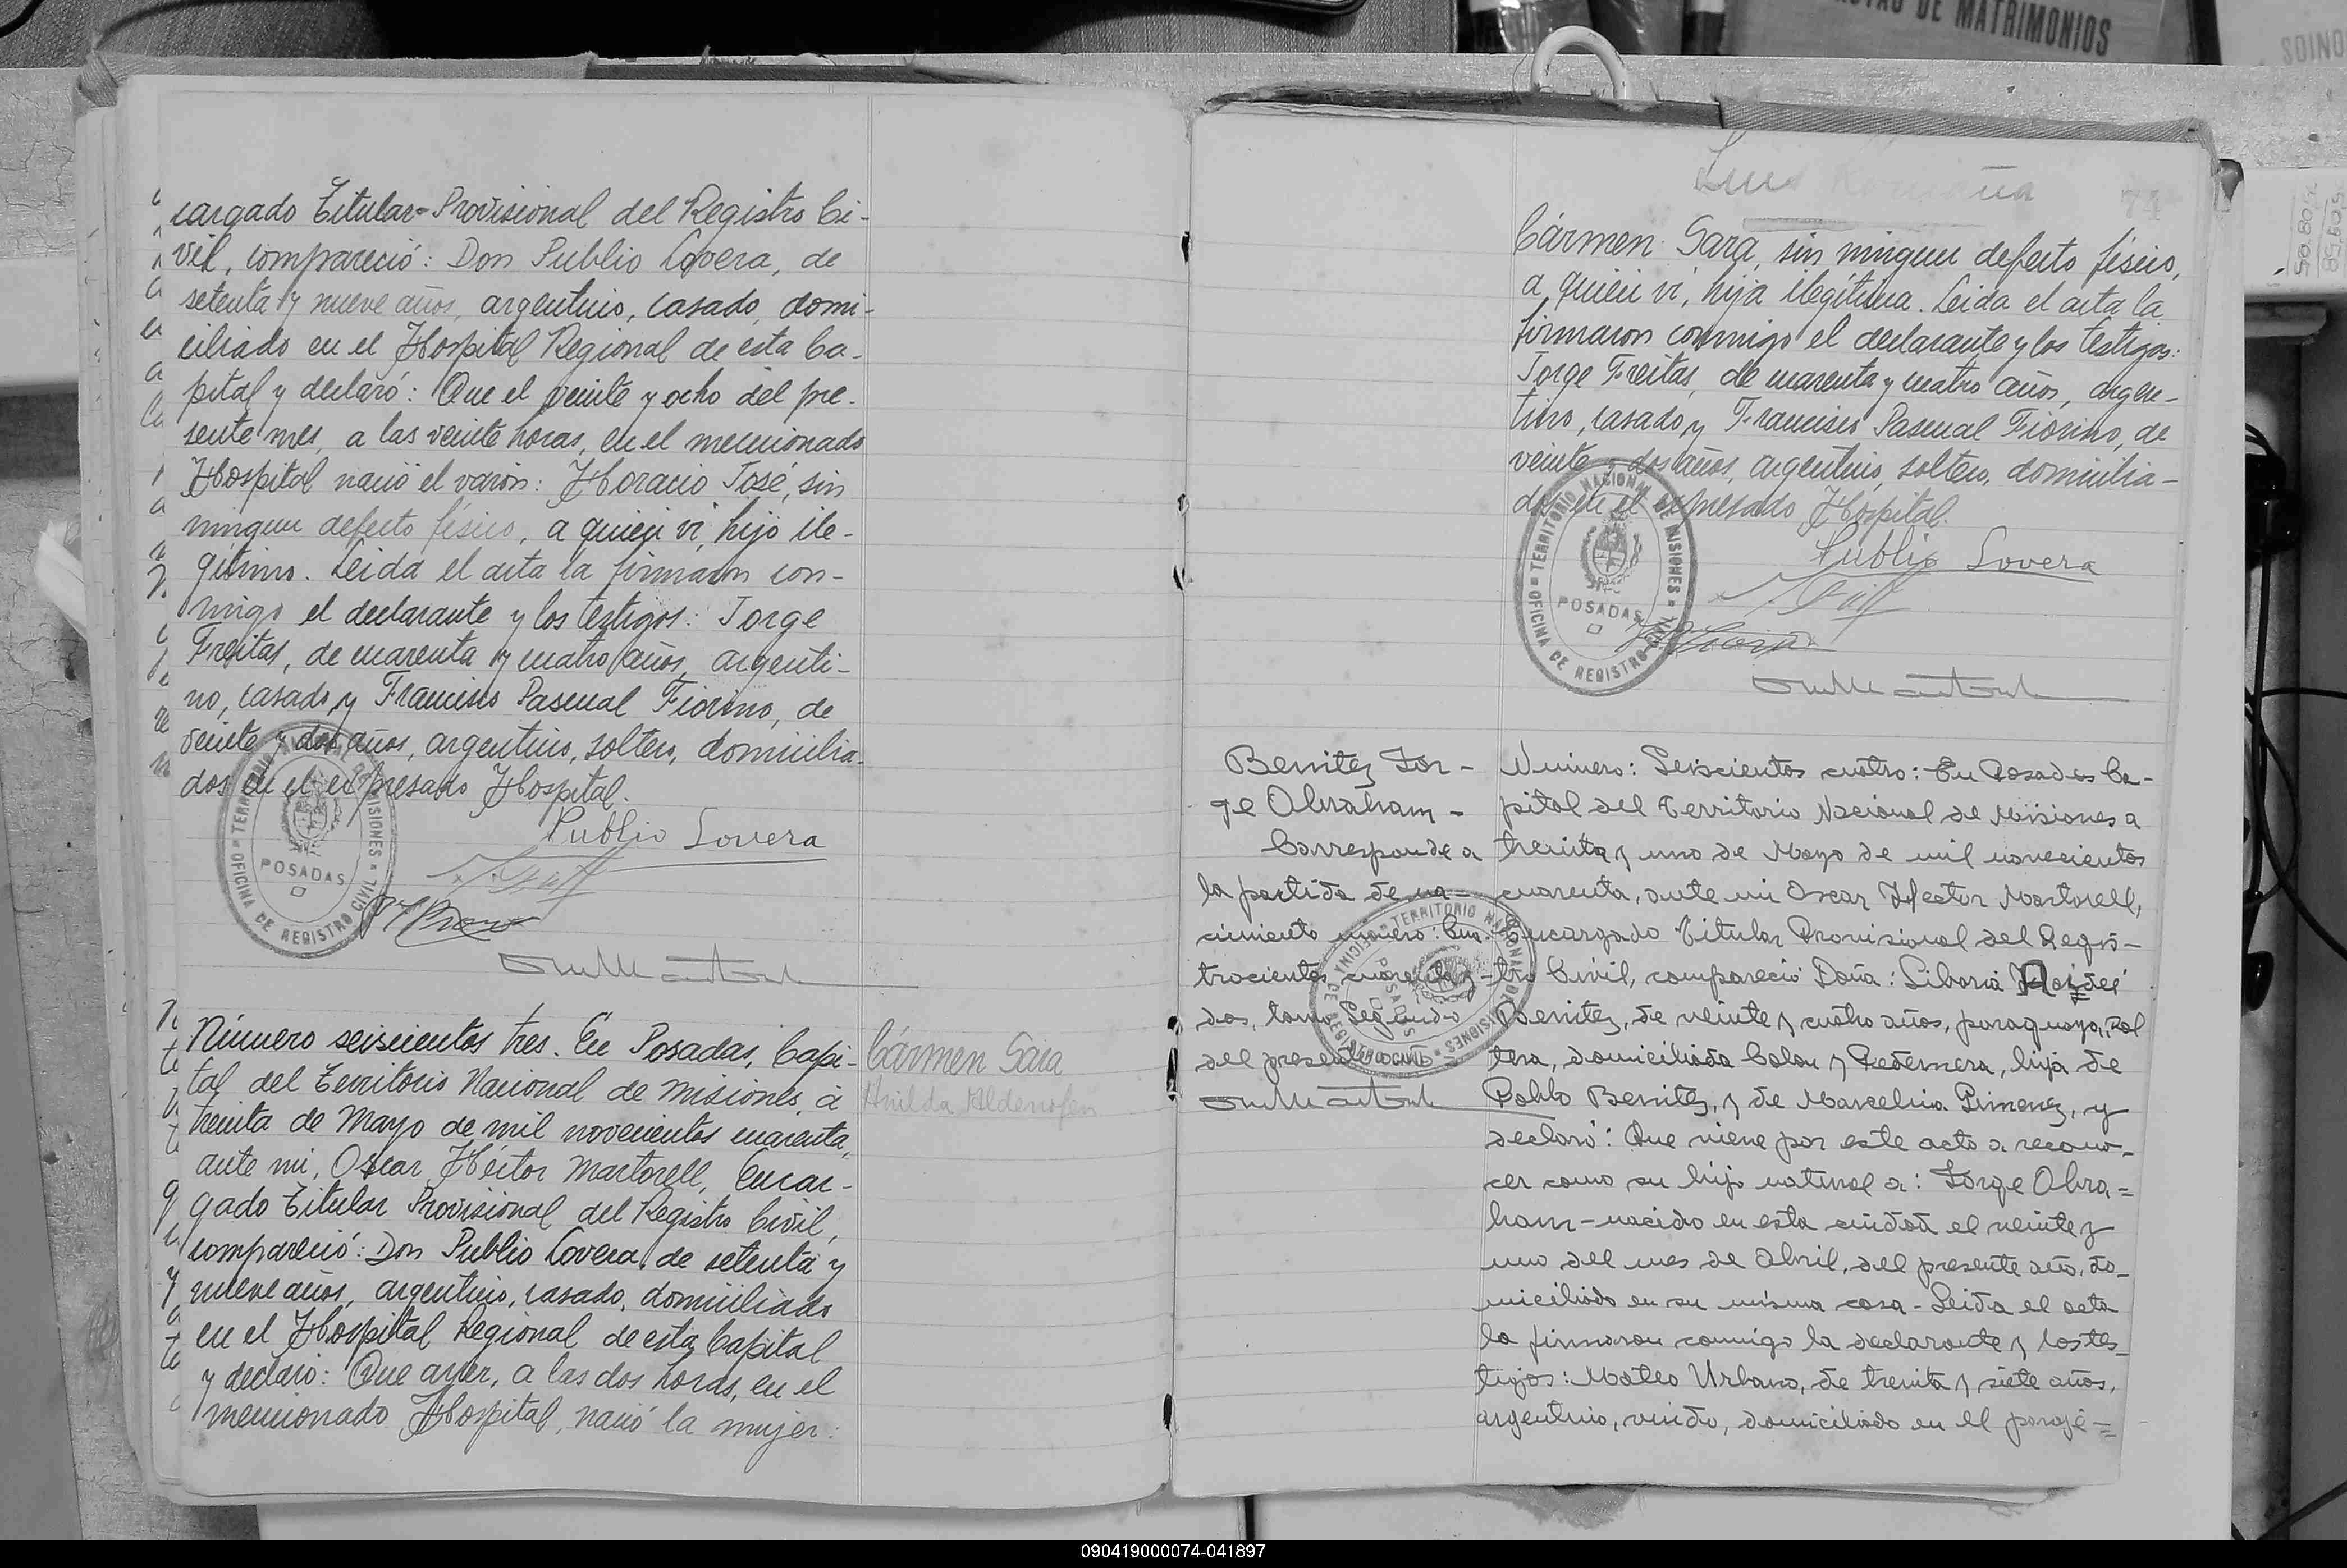 DE MATRIMONIOS
cargado Titular-Provisional del Registro Ci-
vil, compareció: Don Publio Lovera, de
setenta y nueve años, argentino, casado, domi-
ciliado en el Hospital Regional de esta Ca-
pital y declaró: Que el veinte y ocho del pre-
sente mes, a las veinte horas, en el mencionado
Hospital nació el varón: Horacio José, sin
ningun defecto físico, a quien vi, hijo ile-
gitimo. Leida el acta la firmaron con-
migo el declarante y los testigos: Jorge
Freitas, de cuarenta y cuatro años, argenti-
no, casado, y Francisco Pascual Fiorino, de
veinte y dos años, argentino, soltero, domicilia-
dos en el expresado Hospital.
Publio Lovera
TERRITORIO NACIONAL DE MISIONES
POSADAS
OFICINA DE REGISTRO CIVIL
Número seiscientos tres. En Posadas, Capi-
tal del Territorio Nacional de Misiones, a
treinta de Mayo de mil novecientos cuarenta,
ante mi, Oscar Héctor Martorell, Encar-
gado Titular Provisional del Registro Civil,
compareció: Don Publio Lovera, de setenta y
nueve años, argentino, casado, domiciliado
en el Hospital Regional de esta Capital
y declaró: Que ayer, a las dos horas, en el
mencionado Hospital, nació la mujer:
Cármen Sara
74
Cármen Sara, sin ningun defecto físico,
a quien vi, hija ilegítima. Leida el acta la
firmaron conmigo el declarante y los testigos:
Jorge Freitas, de cuarenta y cuatro años, argen-
tino, casado, y Francisco Pascual Fiorino, de
veinte y dos años, argentino, soltero, domicilia-
dos en el expresado Hospital.
Publio Lovera
TERRITORIO NACIONAL DE MISIONES
POSADAS
OFICINA DE REGISTRO CIVIL
Benitez Jor-
ge Abraham-
Corresponde a
la partida de na-
cimiento número: Cua-
trocientos cuarenta y
dos, tomo Segundo
del presente año
TERRITORIO NACIONAL DE MISIONES
POSADAS
OFICINA DE REGISTRO CIVIL
Número: Seiscientos cuatro: En Posadas Ca-
pital del Territorio Nacional de Misiones a
treinta y uno de Mayo de mil novecientos
cuarenta, ante mi Oscar Hector Martorell,
Encargado Titular Provisional del Regis-
tro Civil, compareció Doña: Liboria
Benitez, de veinte y cuatro años, paraguaya, sol
tera, domiciliada Colon y Pedernera, hija de
Pablo Benitez, y de Marcelina Gimenez, y
declaró: Que viene por este acto a recono-
cer como su hijo natural a: Jorge Abra=
ham-nacido en esta ciudad el veinte y
uno del mes de Abril, del presente año, do-
miciliado en su misma casa-Leida el acta
la firmaron conmigo la declarante y los tes-
tigos: Mateo Urbano, de treinta y siete años,
argentino, viudo, domiciliado en el paraje=
090419000074-041897